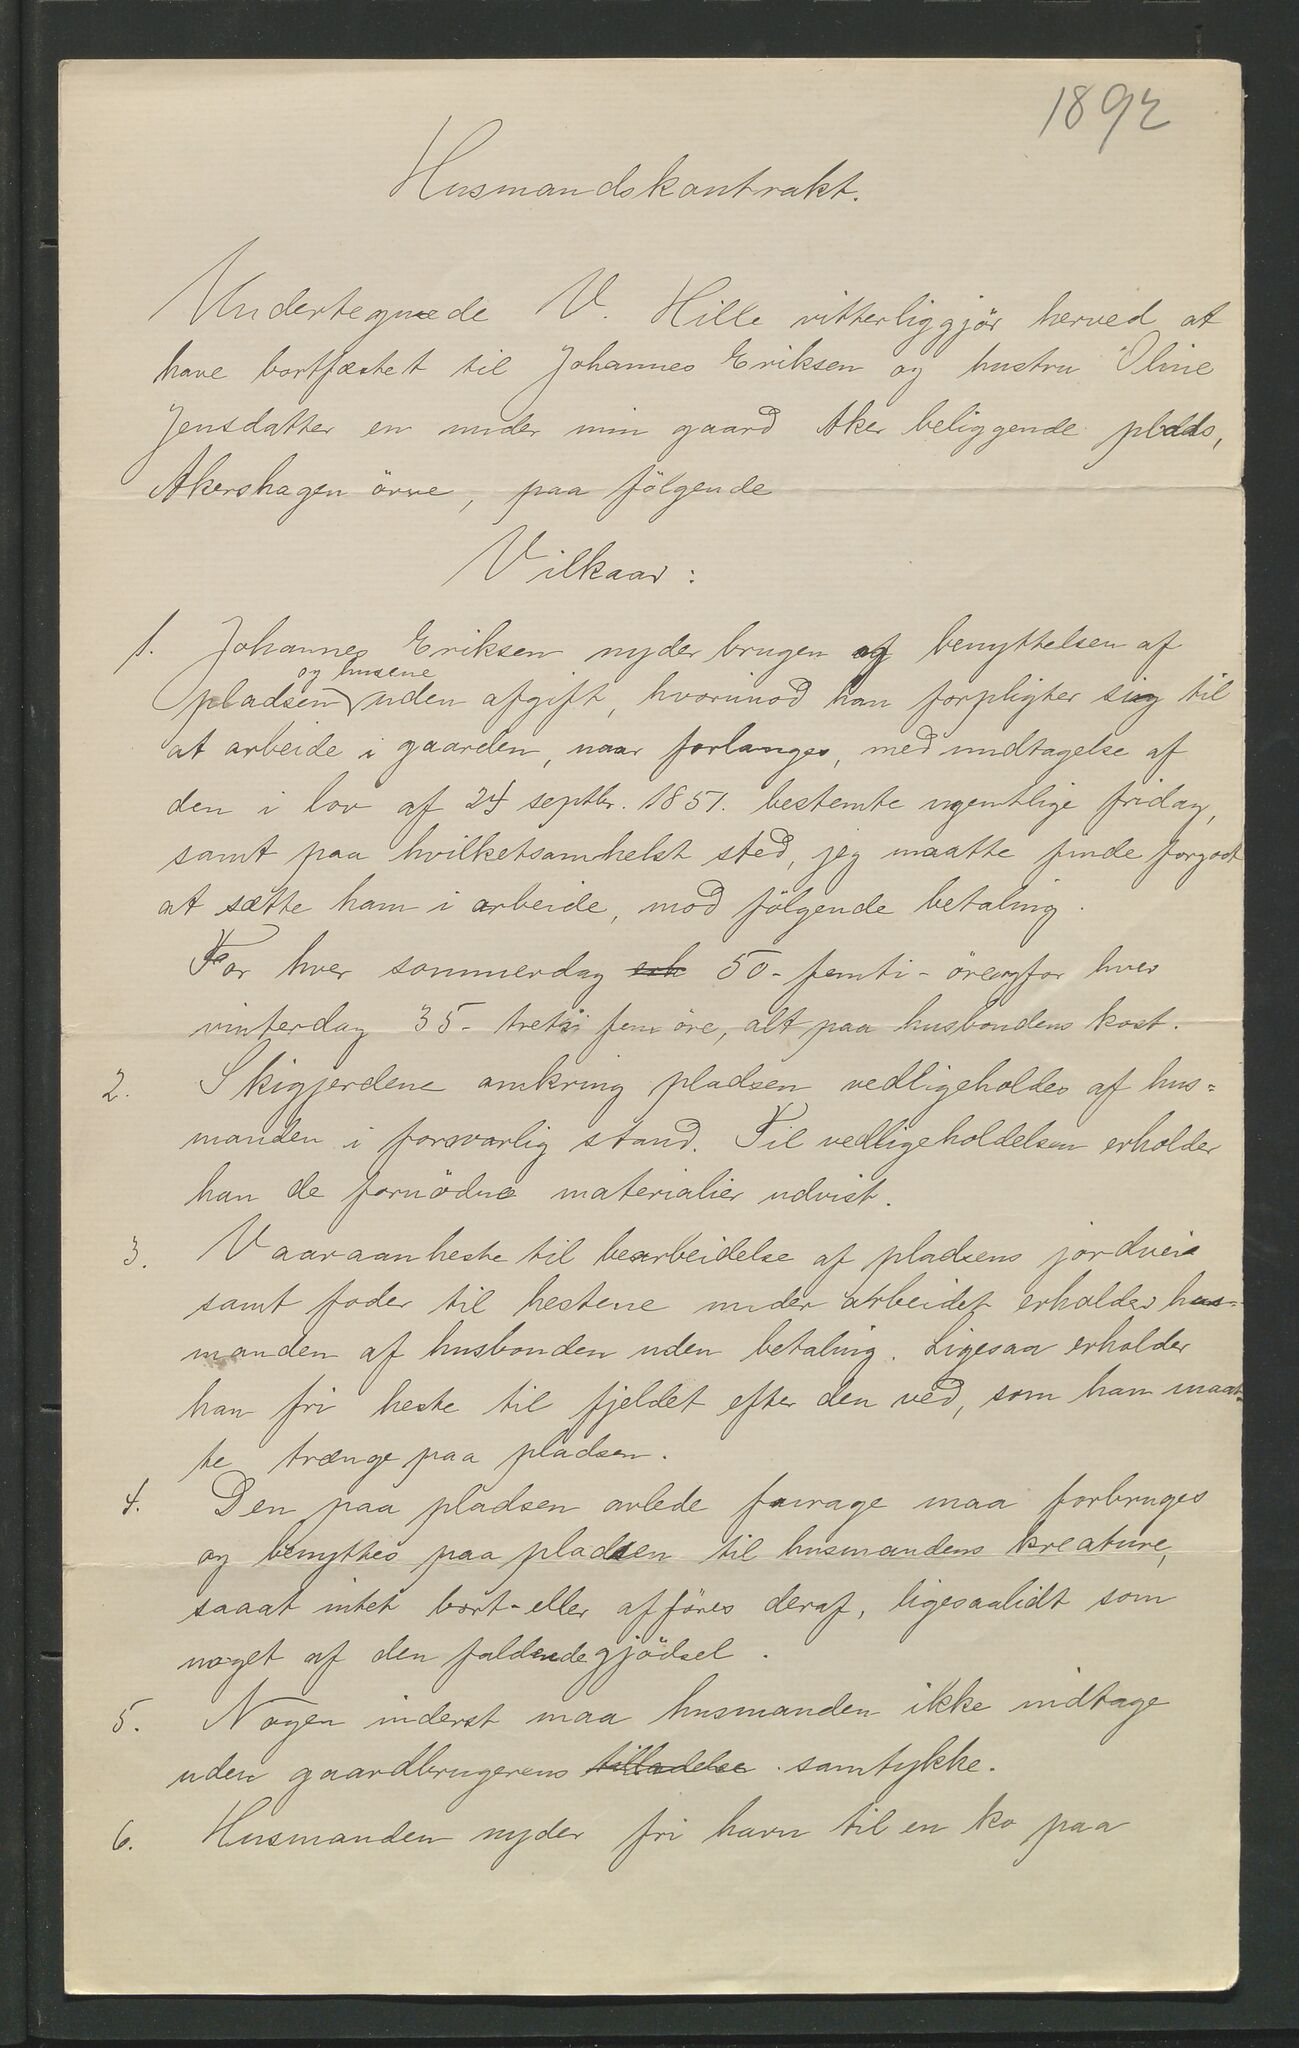 1892
Husmandskontrakt.
Undertegnede V. Hille vitterliggjör herved at
have bortfæstet til Johannes Eriksen og hustru Oline
Jensdatter en under min gaard Aker beliggende plads,
Akershagen övre, paa fölgende
Vilkaar:
1. Johannes Eriksen nyder brugen og benyttelsen af
og husene
pladsen uden afgift, hvorimod han forpligter sig til
at arbeide i gaarden, naar forlanges, med undtagelse af
den i lov af 24 septbr. 1851. bestemte ugentlige fridag,
samt paa hvilketsomhelst sted, jeg maatte finde forgodt
at sætte ham i arbeide, mod fölgende betaling.
For hver sommerdag 50 - femti - öre og for hver
vinterdag 35 - treti fem öre, alt paa husbondens kost.
2. Skigjerdene omkring pladsen vedligeholdes af hus=
manden i forsvarlig stand. Til vedligeholdelsen erholder
han de fornödne materialier udvist.
3. Vaaraanheste til bearbeidelse af pladsens jordveie
samt foder til hestene under arbeidet erholder hus=
manden af husbonden uden betaling. Ligesaa erholder
han fri heste til fjeldet efter den ved, som han maat=
te trænge paa pladsen.
4. Den paa pladsen avlede fourage maa forbruges
og benyttes paa pladsen til husmandens kreature,
saaat intet bort- eller afföres deraf, ligesaalidt som
noget af den faldende gjödsel.
5. Nogen inderst maa husmanden ikke indtage
uden gaardbrugerens tilladelse samtykke.
6. Husmanden nyder fri havn til en ko paa